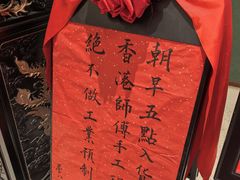 朝早五點入貨
香港師傅手工
絕不做工業預制